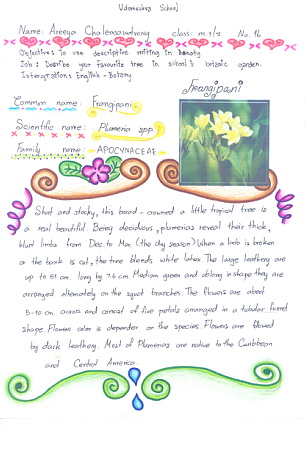 Udomsuksa School
Name: Areeya Chalermsaounvong class: m.1/7 No. 16
Objective: To use descriptive writing in Beauty
Job : Describe your favourite tree in school's botanic garden.
Intergration: English - Botany
Frangipani
Common name: Frangipani
Scientific name: Plumeria spp.
Family name: APOCYNACEAE
Short and stocky, this broad - crowned a little tropical tree is
a real beautiful. Being deciduous, plumerias reveal their thick,
blunt limbs from Dec to Mar (the dry season) When a limb is broken
or the bark is cut, the tree bleeds white latex. The large leathery are
up to 51 cm. long by 7.6 cm. Medium green and oblong in shape they are
arranged alternately on the squat branches. The flowers are about
5-10 cm. across and consist of five petals arranged in a tubular funnel
shape. Flowers color is depender on the species. Flowers are followed
by dark leathery. Most of Plumerias are native to the Caribbean
and Central America.